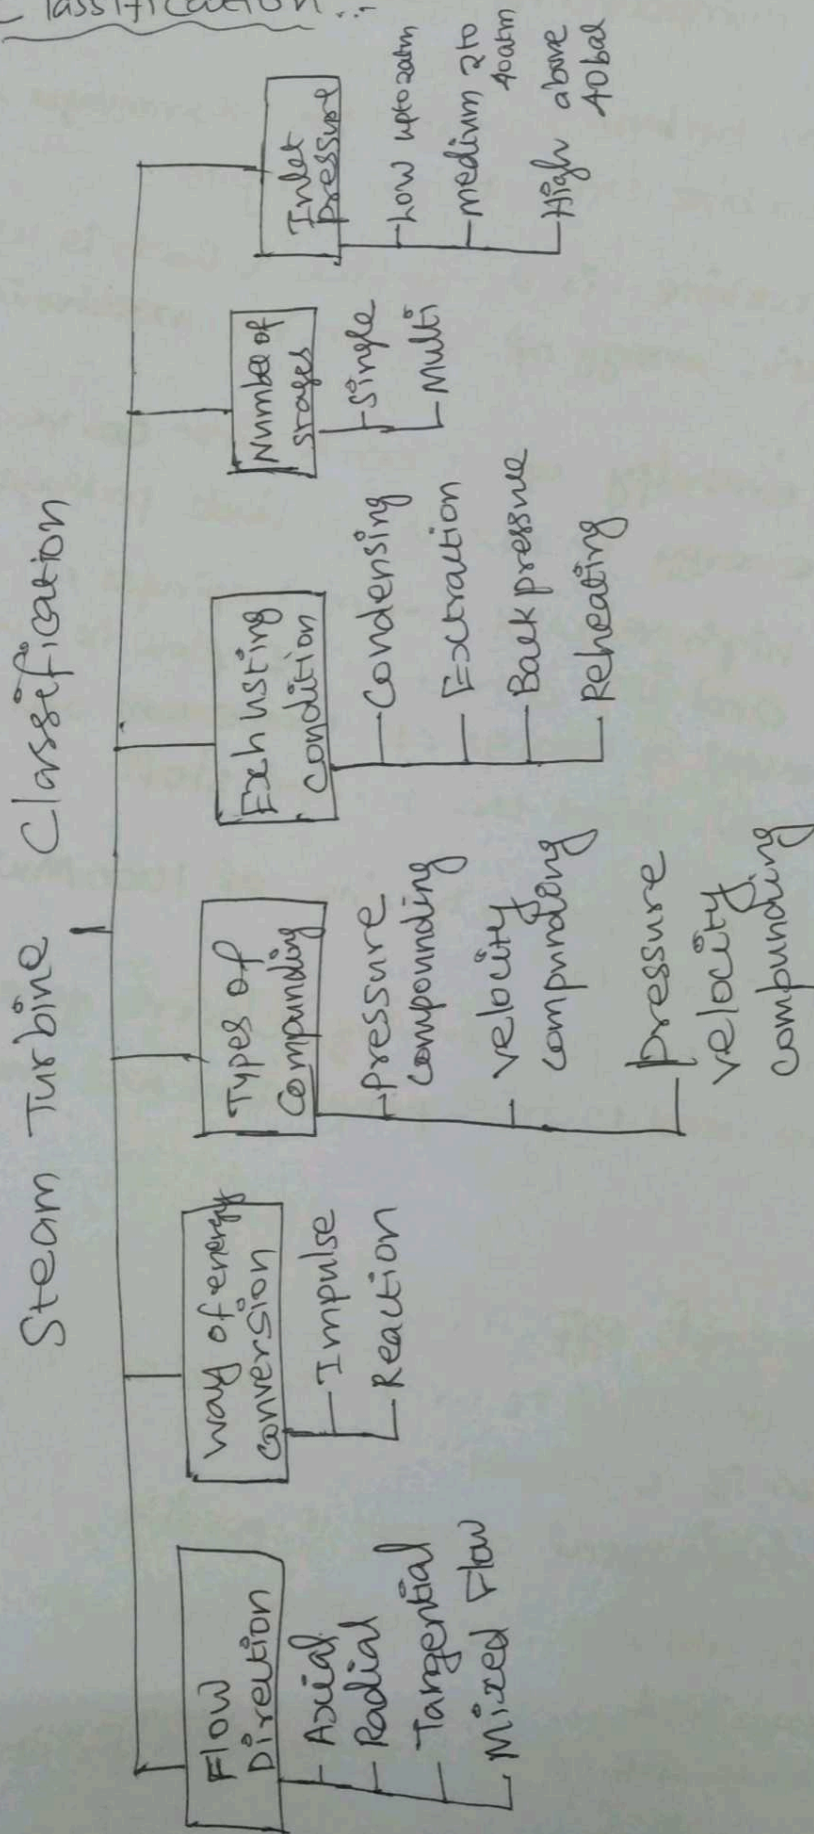 Classification :
Steam Turbine Classification
Flow
Direction
Axial
Radial
Tangential
Mixed Flow
Way of energy
conversion
Impulse
Reaction
Types of
Compunding
Pressure
compounding
velocity
compunding
pressure
velocity
compunding
Exhusting
condition
Condensing
Extraction
Back pressure
Reheating
Number of
stages
Single
Multi
Inlet
pressure
Low upto 2atm
medium 2 to
40atm
High above
40bal